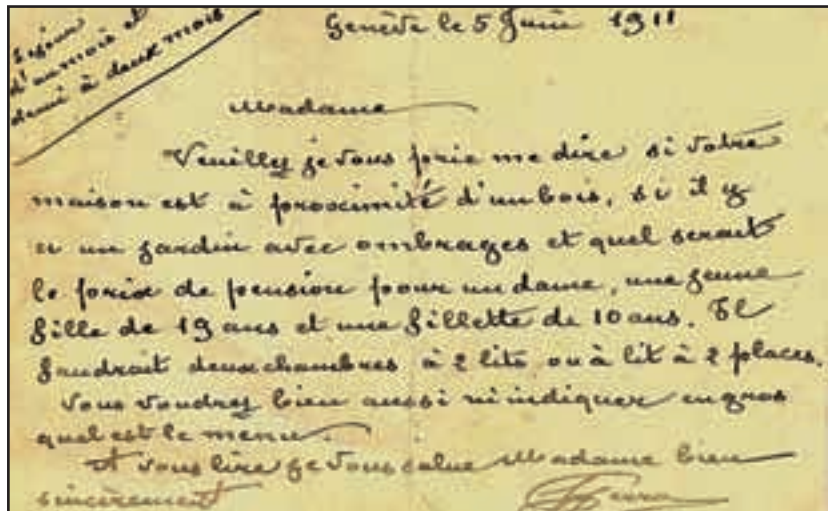 Séjour
d'un mois et
demi à deux mois
Genève le 5 Juin 1911
Madame
Veuillez je vous prie me dire si votre
maison est à proximité d'un bois, si il y
a un jardin avec ombrages et quel serait
le prix de pension pour un dame, une jeune
fille de 19 ans et une fillette de 10 ans. Il
faudrait deux chambres à 2 lits ou à lit à 2 places.
Vous voudrez bien aussi m'indiquer en gros
quel est le menu.
A vous lire je vous salue Madame bien
sincèrement